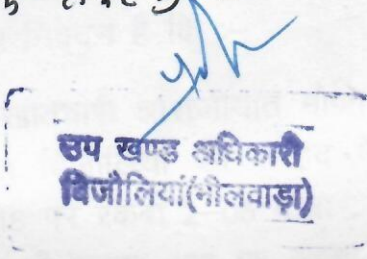 उप खण्ड अधिकारी
बिजौलियां(भीलवाड़ा)